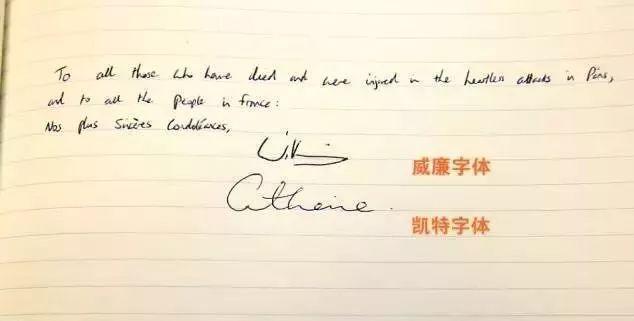 To all those who have died and were injured in the heartless attacks in Paris,
and to all the people in France:
Nos plus Sincères Condoléances,
威廉字体
Catherine.
凯特字体